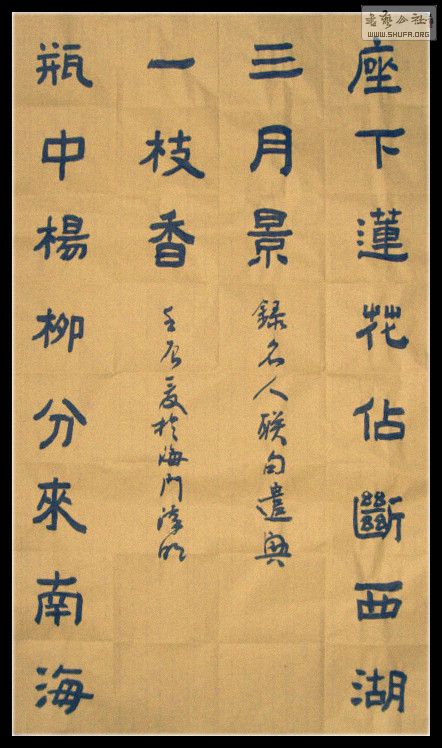 座下蓮花佔斷西湖
三月景
瓶中楊柳分來南海
一枝香
録名人联句遣興
壬辰夏於海門
书艺公社
WWW.SHUFA.ORG